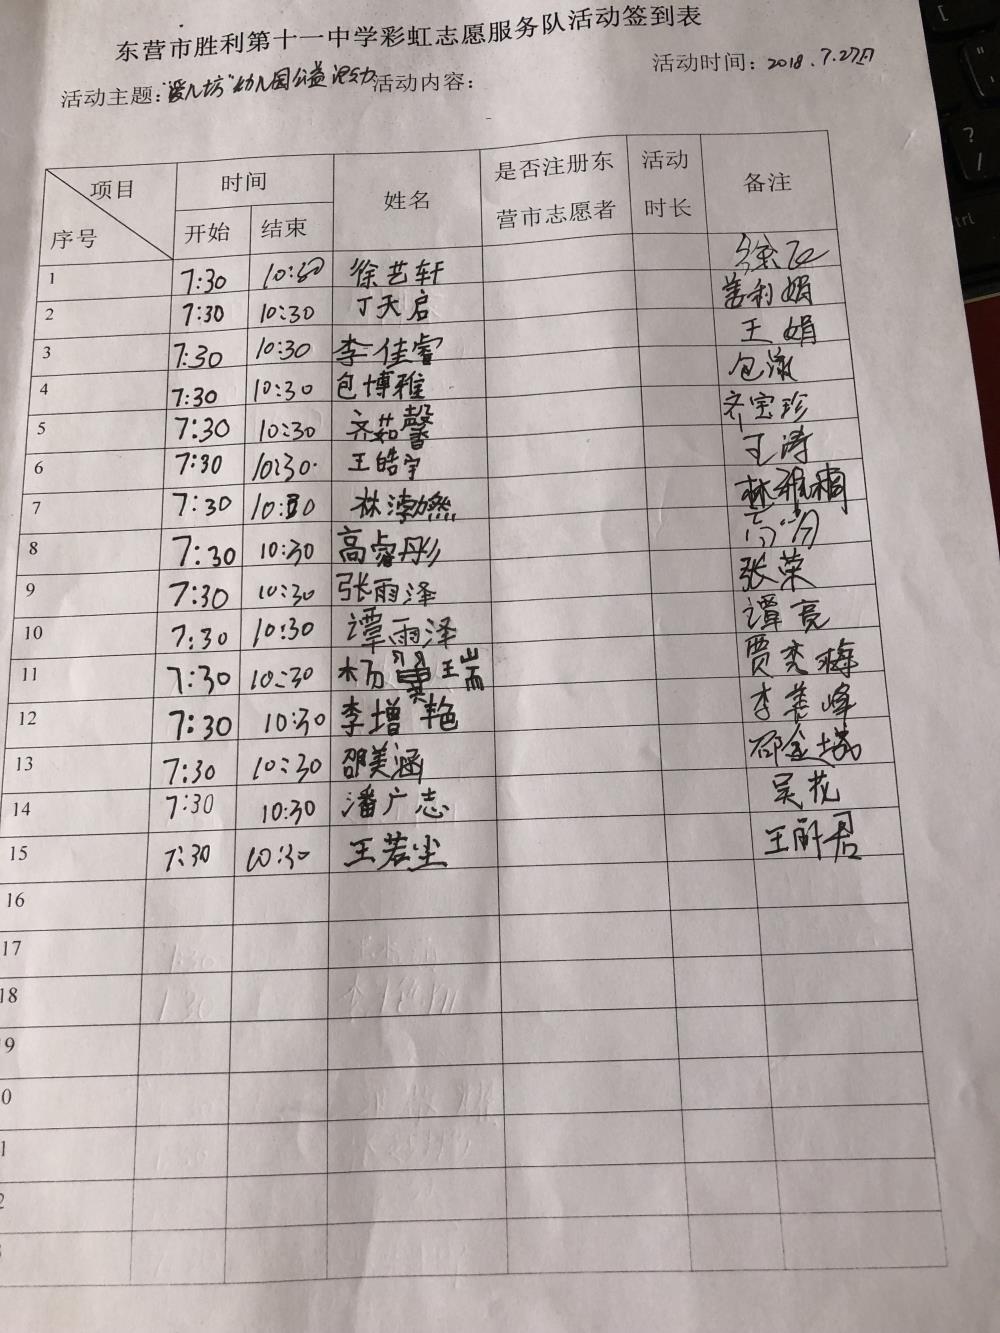 东营市胜利第十一中学彩虹志愿服务队活动签到表
活动主题："爱儿坊"幼儿园公益活动 活动内容： 活动时间：2018.7.27日
项目 序号 时间 姓名 是否注册东营市志愿者 活动时长 备注
开始 结束
1 7:30 10:30 徐艺轩
2 7:30 10:30 丁天启 盖利娟
3 7:30 10:30 李佳睿 王娟
4 7:30 10:30 包博雅
5 7:30 10:30 齐茹馨 齐宝珍
6 7:30 10:30 王皓宇 王涛
7 7:30 10:30 林渤然
8 7:30 10:30 高睿彤
9 7:30 10:30 张雨泽 张荣
10 7:30 10:30 谭雨泽 谭亮
11 7:30 10:30 杨冀瑞
12 7:30 10:30 李增艳 李美峰
13 7:30 10:30 邵美涵
14 7:30 10:30 潘广志 吴花
15 7:30 10:30 王若尘
16
17
18